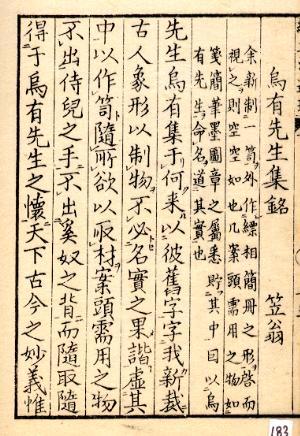 烏有先生集銘　　笠翁
余新制一笥外作縹緗簡冊之形啓而
視之則空空如也几案頭需用之物如
箋簡筆墨圖章之屬悉貯其中因以烏
有先生命名道其實也
先生烏有集于何来以彼舊字字我新裁
古人象形以制物不必名實之果諧虛其
中以作笥隨所欲以取材案頭需用之物
不出侍兒之手不出奚奴之背而隨取隨
得于烏有先生之懷天下古今之妙義惟
183